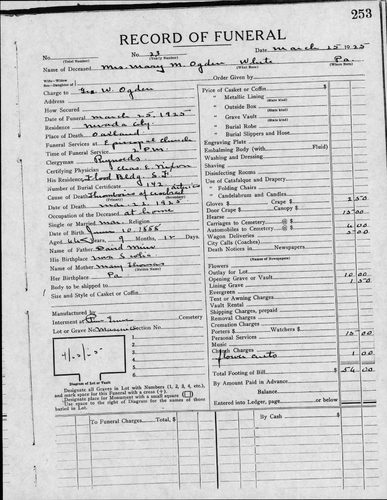 253
RECORD OF FUNERAL
No. No. 23 Date March 25 1925
(Yearly Number)
Name of Deceased Mrs. Mary M. Ogden White Pa.
(What Race) (Where Born)
Wife—Widow
Son—Daughter of
Order Given by
Charge to Geo. W. Ogden
Address
How Secured
Date of Funeral March 25, 1925
Residence Nevada City
Place of Death Oakland
Funeral Services at Episcopal Church
Time P.M.
Clergyman Reynolds
Certifying Physician
His Residence Flood Bldg. S.F.
Number of Burial Certificate 142
Cause of Death Thrombosis of
(Primary) (Secondary)
Date of Death Mar. 22 1925
Occupation of the Deceased at home
Single or Married Mar. Religion
Date of Birth June 10. 1858
Aged 66 Years, 9 Months, 12 Days
Name of Father David
His Birthplace Nova Scotia
Name of Mother Mary Thomas
(Maiden Name)
Her Birthplace Pa
Body to be shipped to
Size and Style of Casket or Coffin
Manufactured by
Interment at Pine Grove Cemetery
Lot or Grave No. Section No.
1.
2.
3.
4.
5.
6.
Diagram of Lot or Vault
Designate all Graves in Lot with Numbers (1, 2, 3, 4, etc.),
and mark space for this Funeral with a cross (+).
Designate place for Monument with a small square
Use space to the right of Diagram for the names of those
buried in Lot.
Price of Casket or Coffin $
" Metallic Lining
(State kind)
" Outside Box
(State kind)
" Grave Vault
(State kind)
" Burial Robe
" Burial Slippers and Hose
Engraving Plate
Embalming Body
Washing and Dressing
Shaving
Disinfecting Rooms
Use of Catafalque and Drapery
" Folding Chairs
" Candelabrum and Candles
Gloves $ Crape $ 2 50
Door Crape $ Canopy 
Hearse 15 00
Carriages to Cemetery—@
Automobiles to Cemetery—@ 6 00
Wagon Deliveries 5 00
City Calls (Coaches)
Death Notices in Newspapers
(Names of Newspapers)
Flowers
Outlay for Lot
Opening Grave or Vault 10 00
Lining Grave 1 50
Evergreen
Tent or Awning Charges
Vault Rental
Shipping Charges, prepaid
Removal Charges
Cremation Charges
Porters $ Watchers $
Personal Services 15 00
Music
Church Charges
flower auto 1 00
Total Footing of Bill $ 56 00
By Amount Paid in Advance
Balance
Entered into Ledger, page or below
To Funeral Charges Total, $
By Cash $